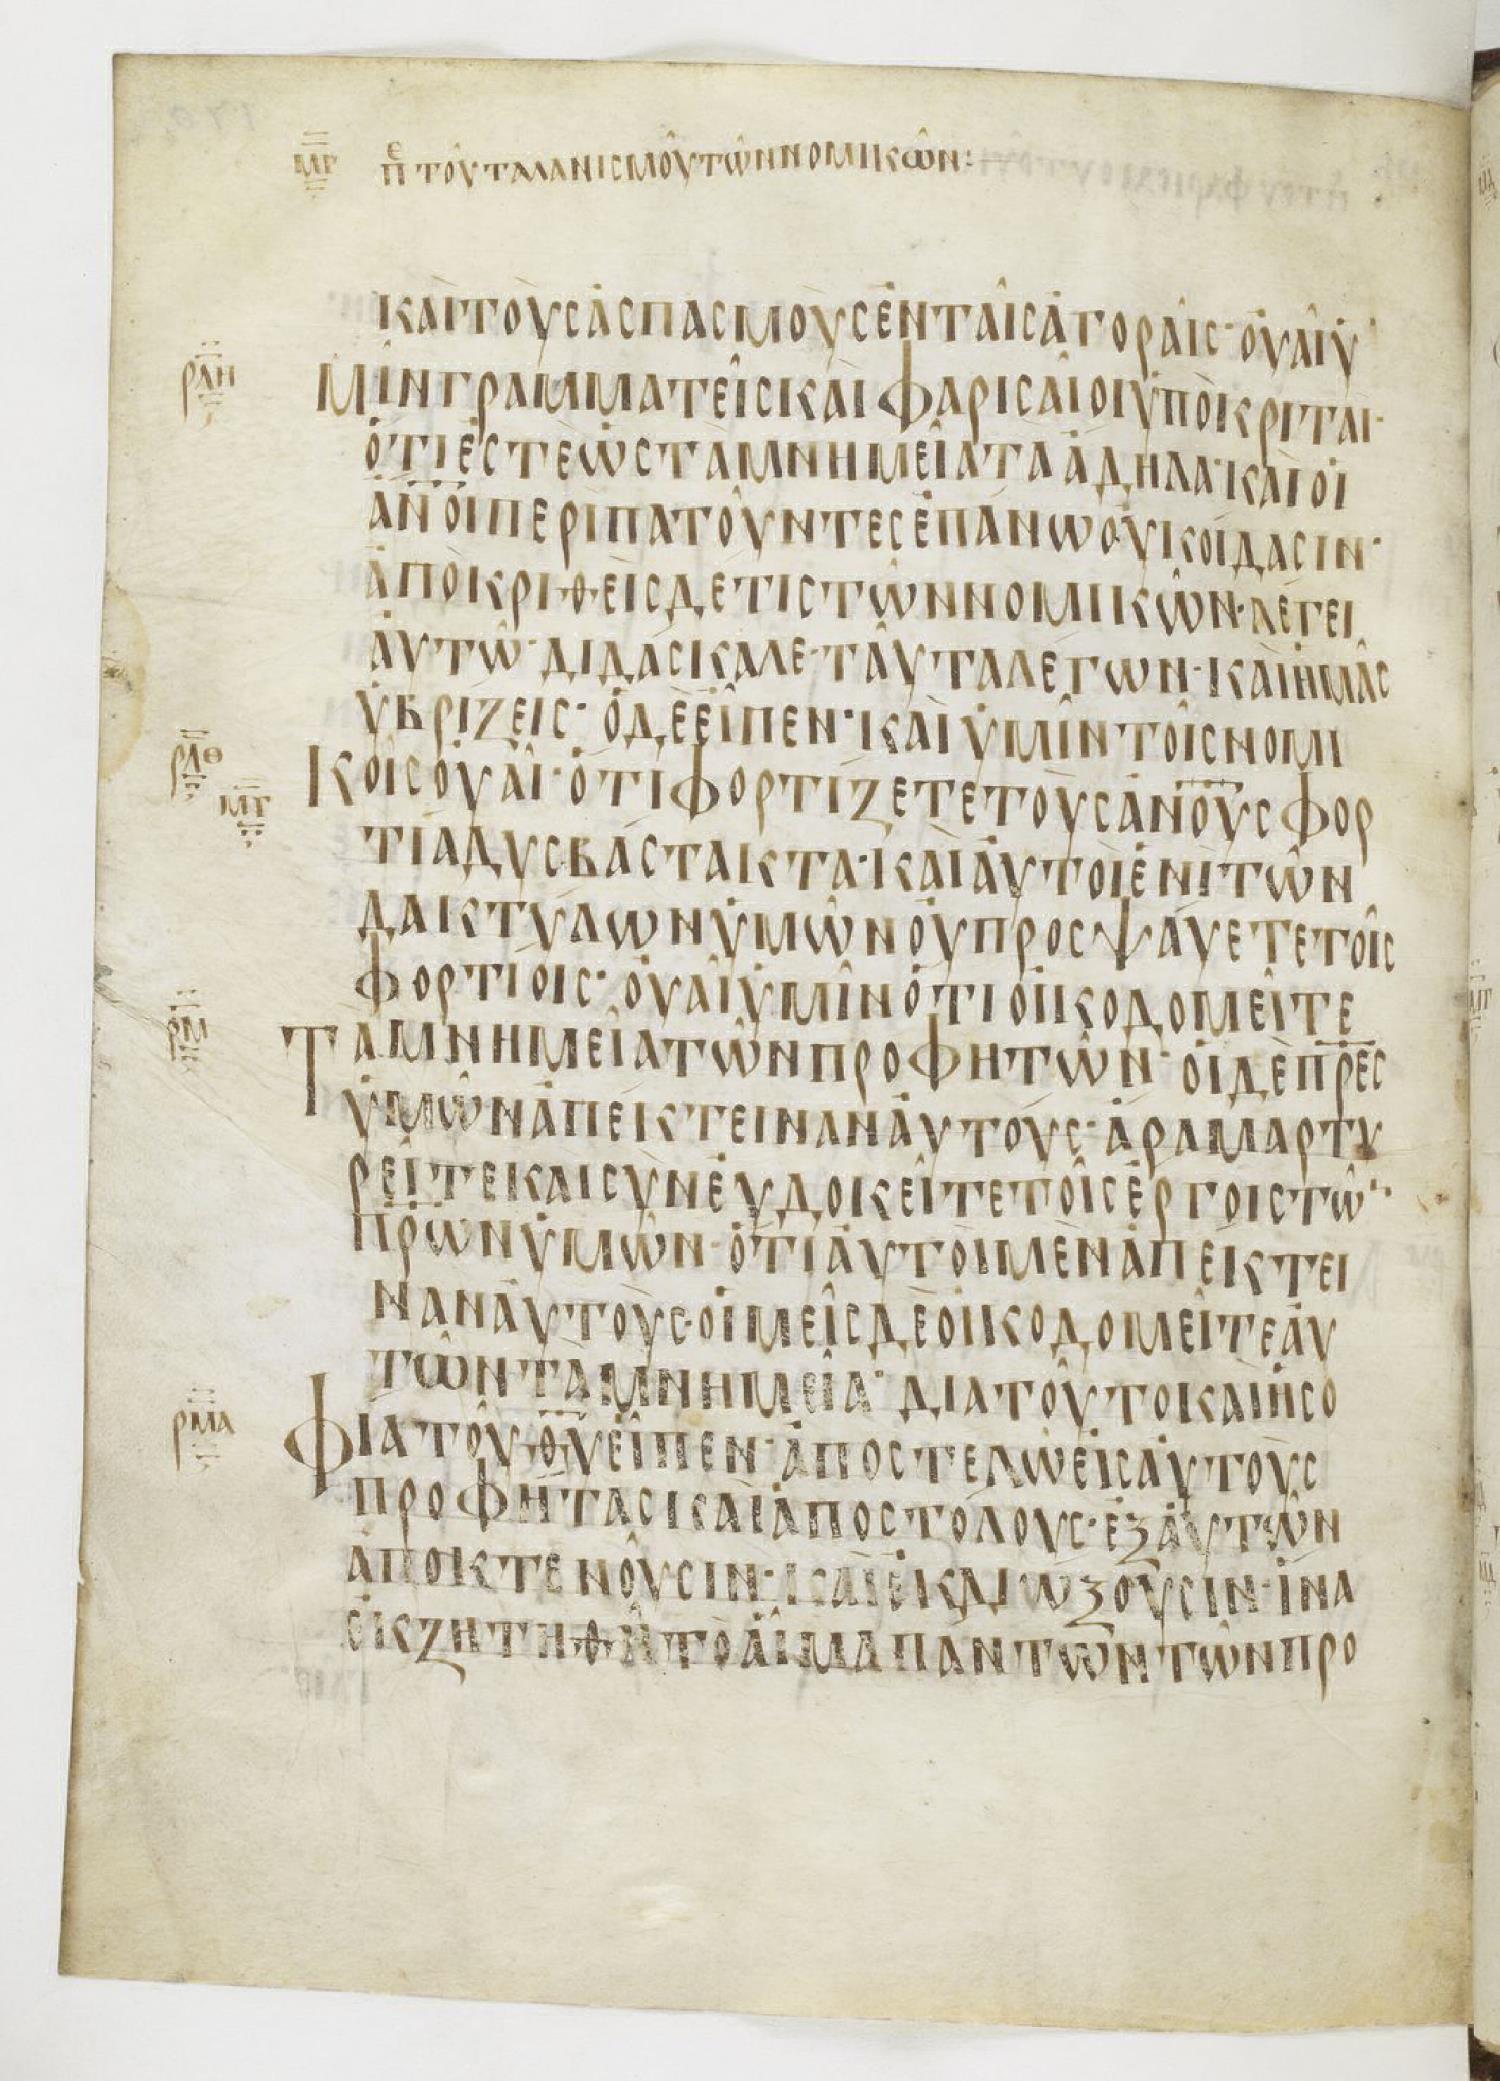 ΜΓ ΠΕ ΤΟΥ ΤΑΛΑΝΙΣΜΟΥ ΤΩΝ ΝΟΜΙΚΩΝ:
ΚΑΙ ΤΟΥΣ ΑΣΠΑΣΜΟΥΣ ΕΝ ΤΑΙΣ ΑΓΟΡΑΙΣ· ΟΥΑΙ Υ
ΡΛΗ ΜΙΝ ΓΡΑΜΜΑΤΕΙΣ ΚΑΙ ΦΑΡΙΣΑΙΟΙ ΥΠΟΚΡΙΤΑΙ·
ΟΤΙ ΕΣΤΕ ΩΣ ΤΑ ΜΝΗΜΕΙΑ ΤΑ ΑΔΗΛΑ· ΚΑΙ ΟΙ
ΑΝΟΙ ΠΕΡΙΠΑΤΟΥΝΤΕΣ ΕΠΑΝΩ ΟΥΚ ΟΙΔΑΣΙΝ·
ΑΠΟΚΡΙΘΕΙΣ ΔΕ ΤΙΣ ΤΩΝ ΝΟΜΙΚΩΝ· ΛΕΓΕΙ
ΑΥΤΩ· ΔΙΔΑΣΚΑΛΕ· ΤΑΥΤΑ ΛΕΓΩΝ· ΚΑΙ ΗΜΑΣ
ΥΒΡΙΖΕΙΣ· Ο ΔΕ ΕΙΠΕΝ· ΚΑΙ ΥΜΙΝ ΤΟΙΣ ΝΟΜΙ
ΡΛΘ ΜΓ ΚΟΙΣ ΟΥΑΙ· ΟΤΙ ΦΟΡΤΙΖΕΤΕ ΤΟΥΣ ΑΝΟΥΣ ΦΟΡ
ΤΙΑ ΔΥΣΒΑΣΤΑΚΤΑ· ΚΑΙ ΑΥΤΟΙ ΕΝΙ ΤΩΝ
ΔΑΚΤΥΛΩΝ ΥΜΩΝ ΟΥ ΠΡΟΣΨΑΥΕΤΕ ΤΟΙΣ
ΦΟΡΤΙΟΙΣ· ΟΥΑΙ ΥΜΙΝ ΟΤΙ ΟΙΚΟΔΟΜΕΙΤΕ
ΡΜ ΤΑ ΜΝΗΜΕΙΑ ΤΩΝ ΠΡΟΦΗΤΩΝ· ΟΙ ΔΕ ΠΡΕΣ
ΥΜΩΝ ΑΠΕΚΤΕΙΝΑΝ ΑΥΤΟΥΣ· ΑΡΑ ΜΑΡΤΥ
ΡΕΙΤΕ ΚΑΙ ΣΥΝΕΥΔΟΚΕΙΤΕ ΤΟΙΣ ΕΡΓΟΙΣ ΤΩ
ΠΡΩΝ ΥΜΩΝ· ΟΤΙ ΑΥΤΟΙ ΜΕΝ ΑΠΕΚΤΕΙ
ΝΑΝ ΑΥΤΟΥΣ· ΟΙΜΕΙΣ ΔΕ ΟΙΚΟΔΟΜΕΙΤΕ ΑΥ
ΤΩΝ ΤΑ ΜΝΗΜΕΙΑ· ΔΙΑ ΤΟΥΤΟ ΚΑΙ Η ΣΟ
ΡΜΑ ΦΙΑ ΤΟΥ ΘΥ ΕΙΠΕΝ· ΑΠΟΣΤΕΛΩ ΕΙΣ ΑΥΤΟΥΣ
ΠΡΟΦΗΤΑΣ ΚΑΙ ΑΠΟΣΤΟΛΟΥΣ· ΕΞ ΑΥΤΩΝ
ΑΠΟΚΤΕΝΟΥΣΙΝ· ΚΑΙ ΕΚΔΙΩΞΟΥΣΙΝ· ΙΝΑ
ΕΚΖΗΤΗΘΗ ΤΟ ΑΙΜΑ ΠΑΝΤΩΝ ΤΩΝ ΠΡΟ